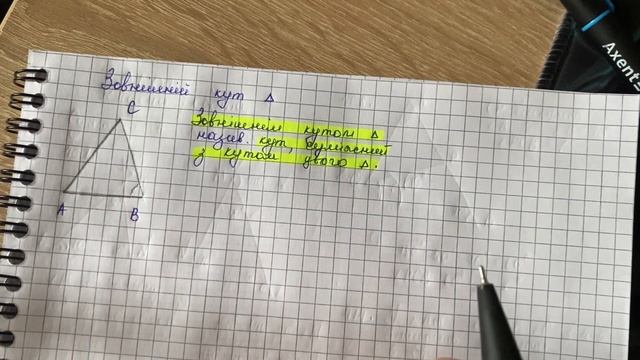 Зовнішній кут △
C
Зовнішнім кутом △
назив. кут, суміжний
з кутом цього △.
A
B
Axent